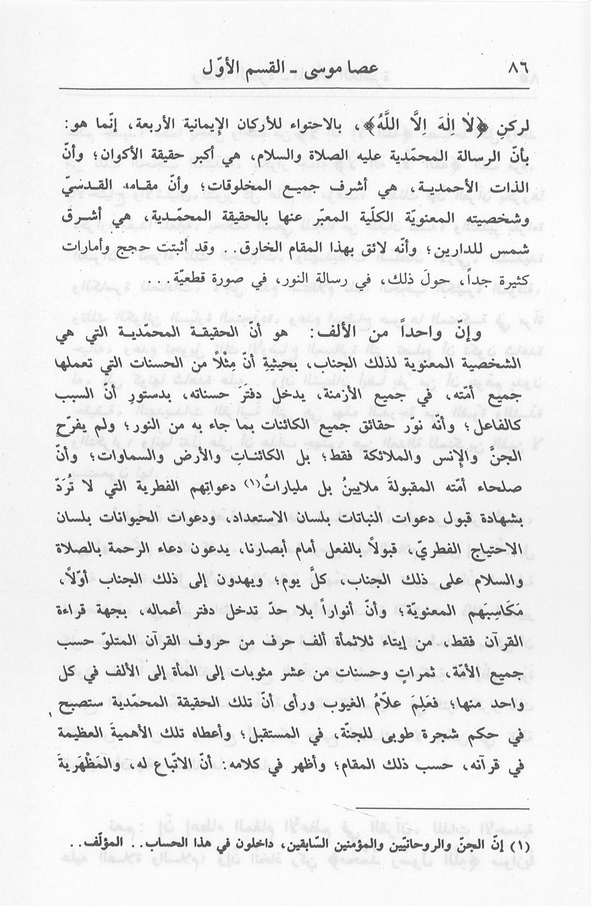 ٨٦ عصا موسى - القسم الأوّل
لركنِ ﴿لَا اِلٰهَ اِلَّا اللَّهُ﴾، بالاحتواء للأركان الإيمانية الأربعة، إنّما هو:
بأنّ الرسالة المحمّدية عليه الصلاة والسلام، هي أكبر حقيقة الأكوان؛ وأنّ
الذات الأحمدية، هي أشرف جميع المخلوقات؛ وأنّ مقامه القدسيّ
وشخصيته المعنويّة الكلّية المعبّر عنها بالحقيقة المحمّدية، هي أشرق
شمس للدارين؛ وأنّه لائق بهذا المقام الخارق.. وقد أثبتت حجج وأمارات
كثيرة جداً، حولَ ذلك، في رسالة النور، في صورة قطعيّة...
وإنّ واحداً من الألف: هو أنّ الحقيقة المحمّدية التي هي
الشخصية المعنوية لذلك الجناب، بحيثيةِ أنّ مِثْلاً من الحسنات التي تعملها
جميع أمّته، في جميع الأزمنة، يدخل دفترَ حسناته، بدستورِ أنّ السبب
كالفاعل؛ وأنّه نوّر حقائق جميع الكائنات بما جاء به من النور؛ ولم يفرّح
الجنَّ والإنس والملائكة فقط؛ بل الكائناتِ والأرض والسماوات؛ وأنّ
صلحاء أمّته المقبولةَ ملايينُ بل ملياراتُ(١) دعواتِهم الفطرية التي لا تُرَدّ
بشهادة قبول دعوات النباتات بلسان الاستعداد، ودعوات الحيوانات بلسان
الاحتياج الفطريّ، قبولاً بالفعل أمام أبصارنا، يدعون دعاء الرحمة بالصلاة
والسلام على ذلك الجناب، كلَّ يوم؛ ويهدون إلى ذلك الجناب أوّلاً،
مَكَاسِبَهم المعنويّة؛ وأنّ أنواراً بلا حدّ تدخل دفتر أعماله، بجهة قراءة
القرآن فقط، من إيتاء ثلاثمأة ألف حرف من حروف القرآن المتلوّ حسب
جميع الأمّة، ثمراتٍ وحسنات من عشر مثوبات إلى المأة إلى الألف في كل
واحد منها؛ فعَلِمَ علاّمُ الغيوب ورأى أنّ تلك الحقيقة المحمّدية ستصبح
في حكم شجرة طوبى للجنّة، في المستقبل؛ وأعطاه تلك الأهميةَ العظيمة
في قرآنه، حسب ذلك المقام؛ وأظهر في كلامه: أنّ الاتّباع له، والمَظْهَريةَ
(١) إنّ الجنّ والروحانيّين والمؤمنين السّابقين، داخلون في هذا الحساب.. المؤلّف..